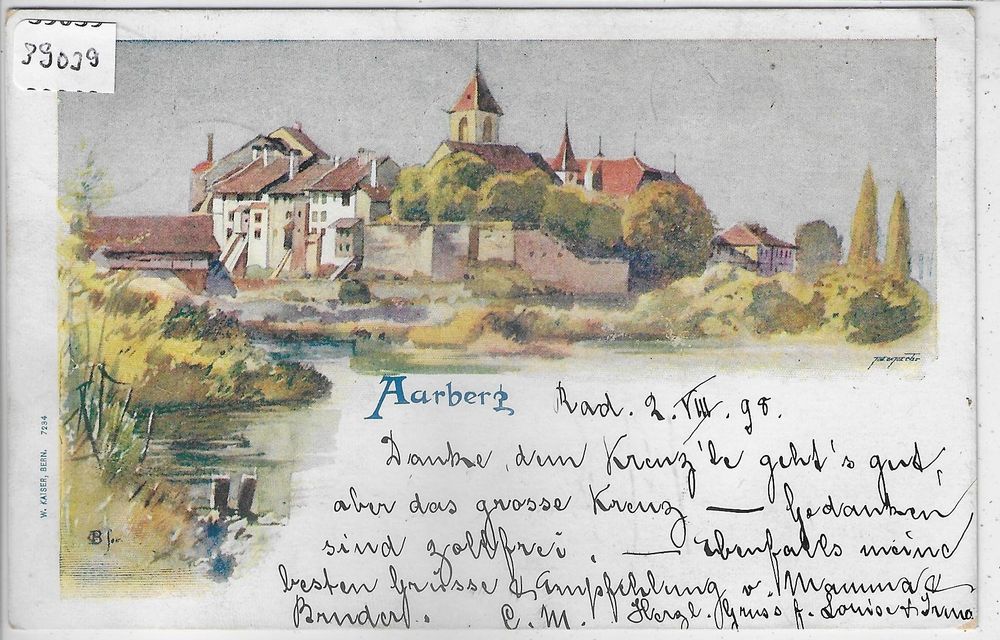 39039
Aarberg
Rad. 2. VIII. 98.
Danke, dem Kreuz'le geht's gut,
aber das grosse Kreuz — Gedanken
sind zollfrei. — Ebenfalls meine
besten Grüsse & Empfehlung v. Mamma &
Bruder. C. M. Herzl. Gruss f. Louise & Irma
W. KAISER, BERN. 7234